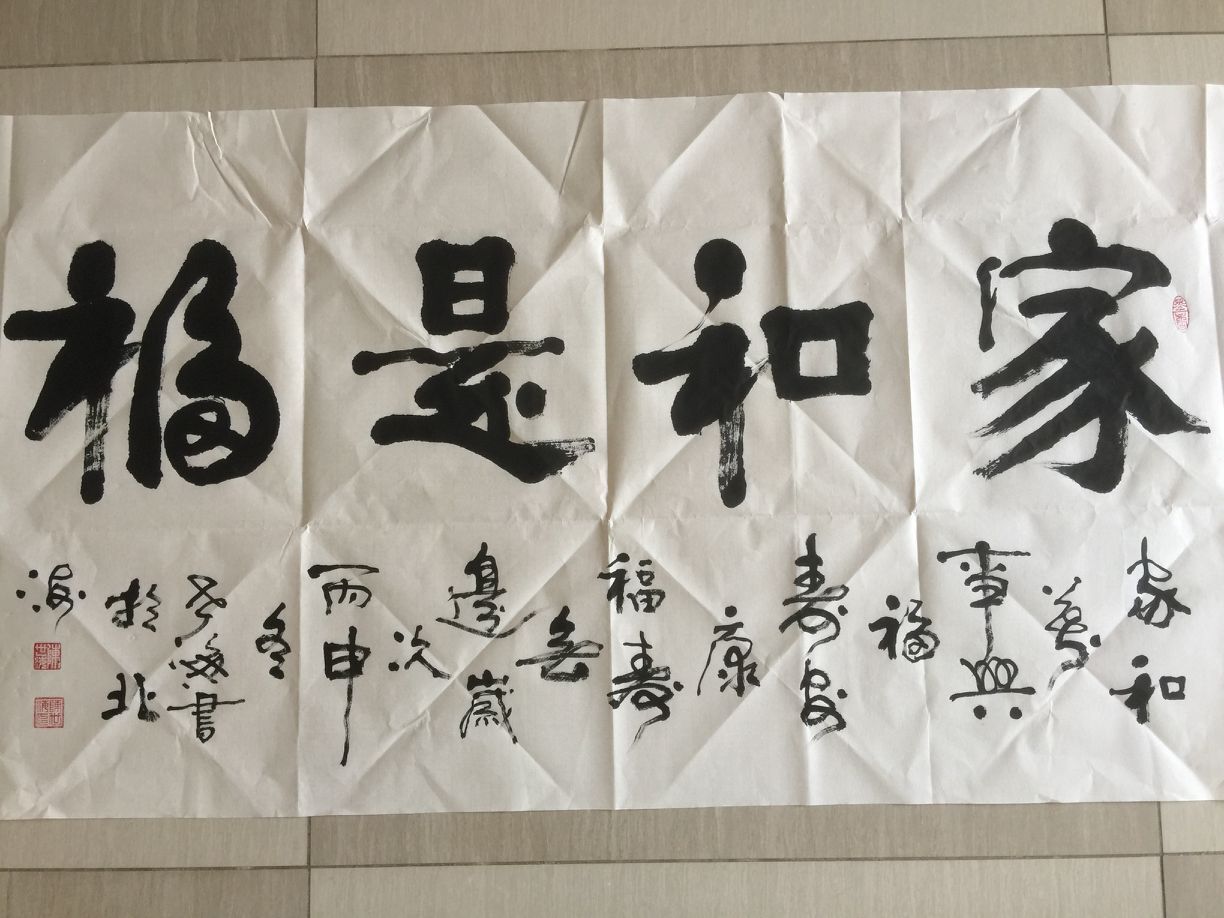 家和是福
家和
萬
事興
福
壽安
康
福壽
無
邊歲
次
丙申
冬
書
於北
海